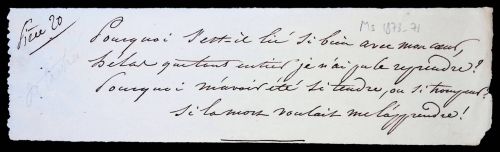 Pièce 20
Ms 1873-71
Pourquoi s'est-il lié si bien avec mon cœur,
hélas que tout entier je n'ai pu le reprendre ?
Pourquoi m'avoir été si tendre, ou si trompeur ?
Si la mort voulait me l'apprendre !